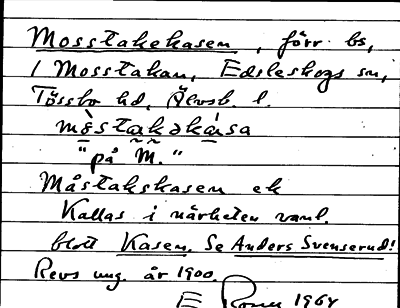 Mosstakekasen, förr bs,
i Mosstakan, Edsleskogs sn,
Tössbo hd, Älvsb. l.
mòstakəkása
"på M."
Måstakskasen ek
Kallas i närheten vanl.
blott Kasen. Se Anders Svenserud!
Revs ung. år 1900.
E 1964